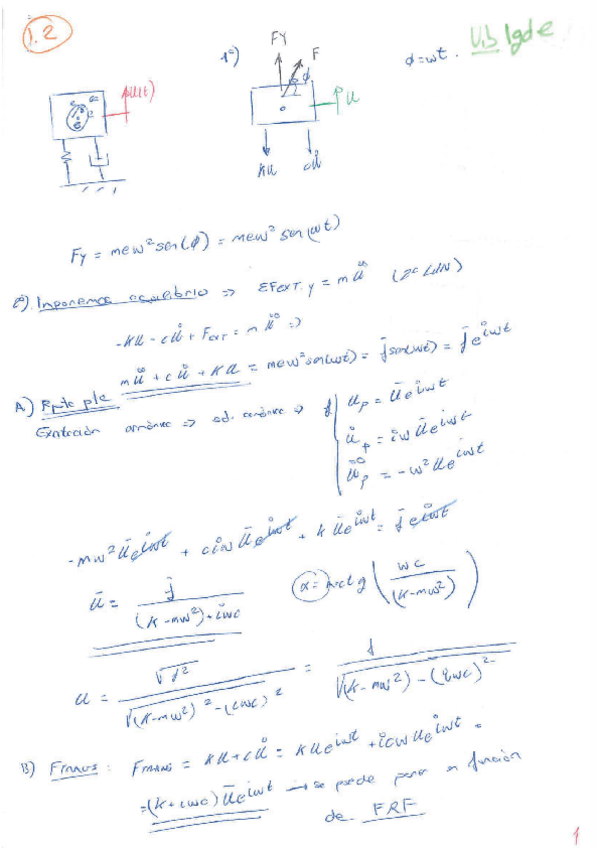 1.2
1º)
FY
F
φ
φ=ωt.
u(t)
u
Ku
cu̇
Fy = meω² sen(φ) = meω² sen(ωt)
2º) Imponemos equilibrio => ΣFext.y = mü (2ª LdN)
-Ku - cu̇ + Fext = mü =>
mü + cu̇ + Ku = meω² sen(ωt) = f̄ sen(ωt) = f̄ e^iωt
A) Rpta ple
Excitación armónica => sol. armónica =>
u_p = ū e^iωt
u̇_p = iω ū e^iωt
ü_p = -ω² ū e^iωt
-mω² ū e^iωt + ciω ū e^iωt + k ū e^iωt = f̄ e^iωt
ū = f̄ / ((K-mω²)+iωc)
α = arctg (ωc / (K-mω²))
u = √f² / √((K-mω²)² - (iωc)²) = f / √((K-mω²) - (iωc)²)
B) Ftrans: Ftrans = Ku + cu̇ = Kūe^iωt + icω ūe^iωt =
= (K+iωc) ū e^iωt → se puede poner en función
de FRF
1